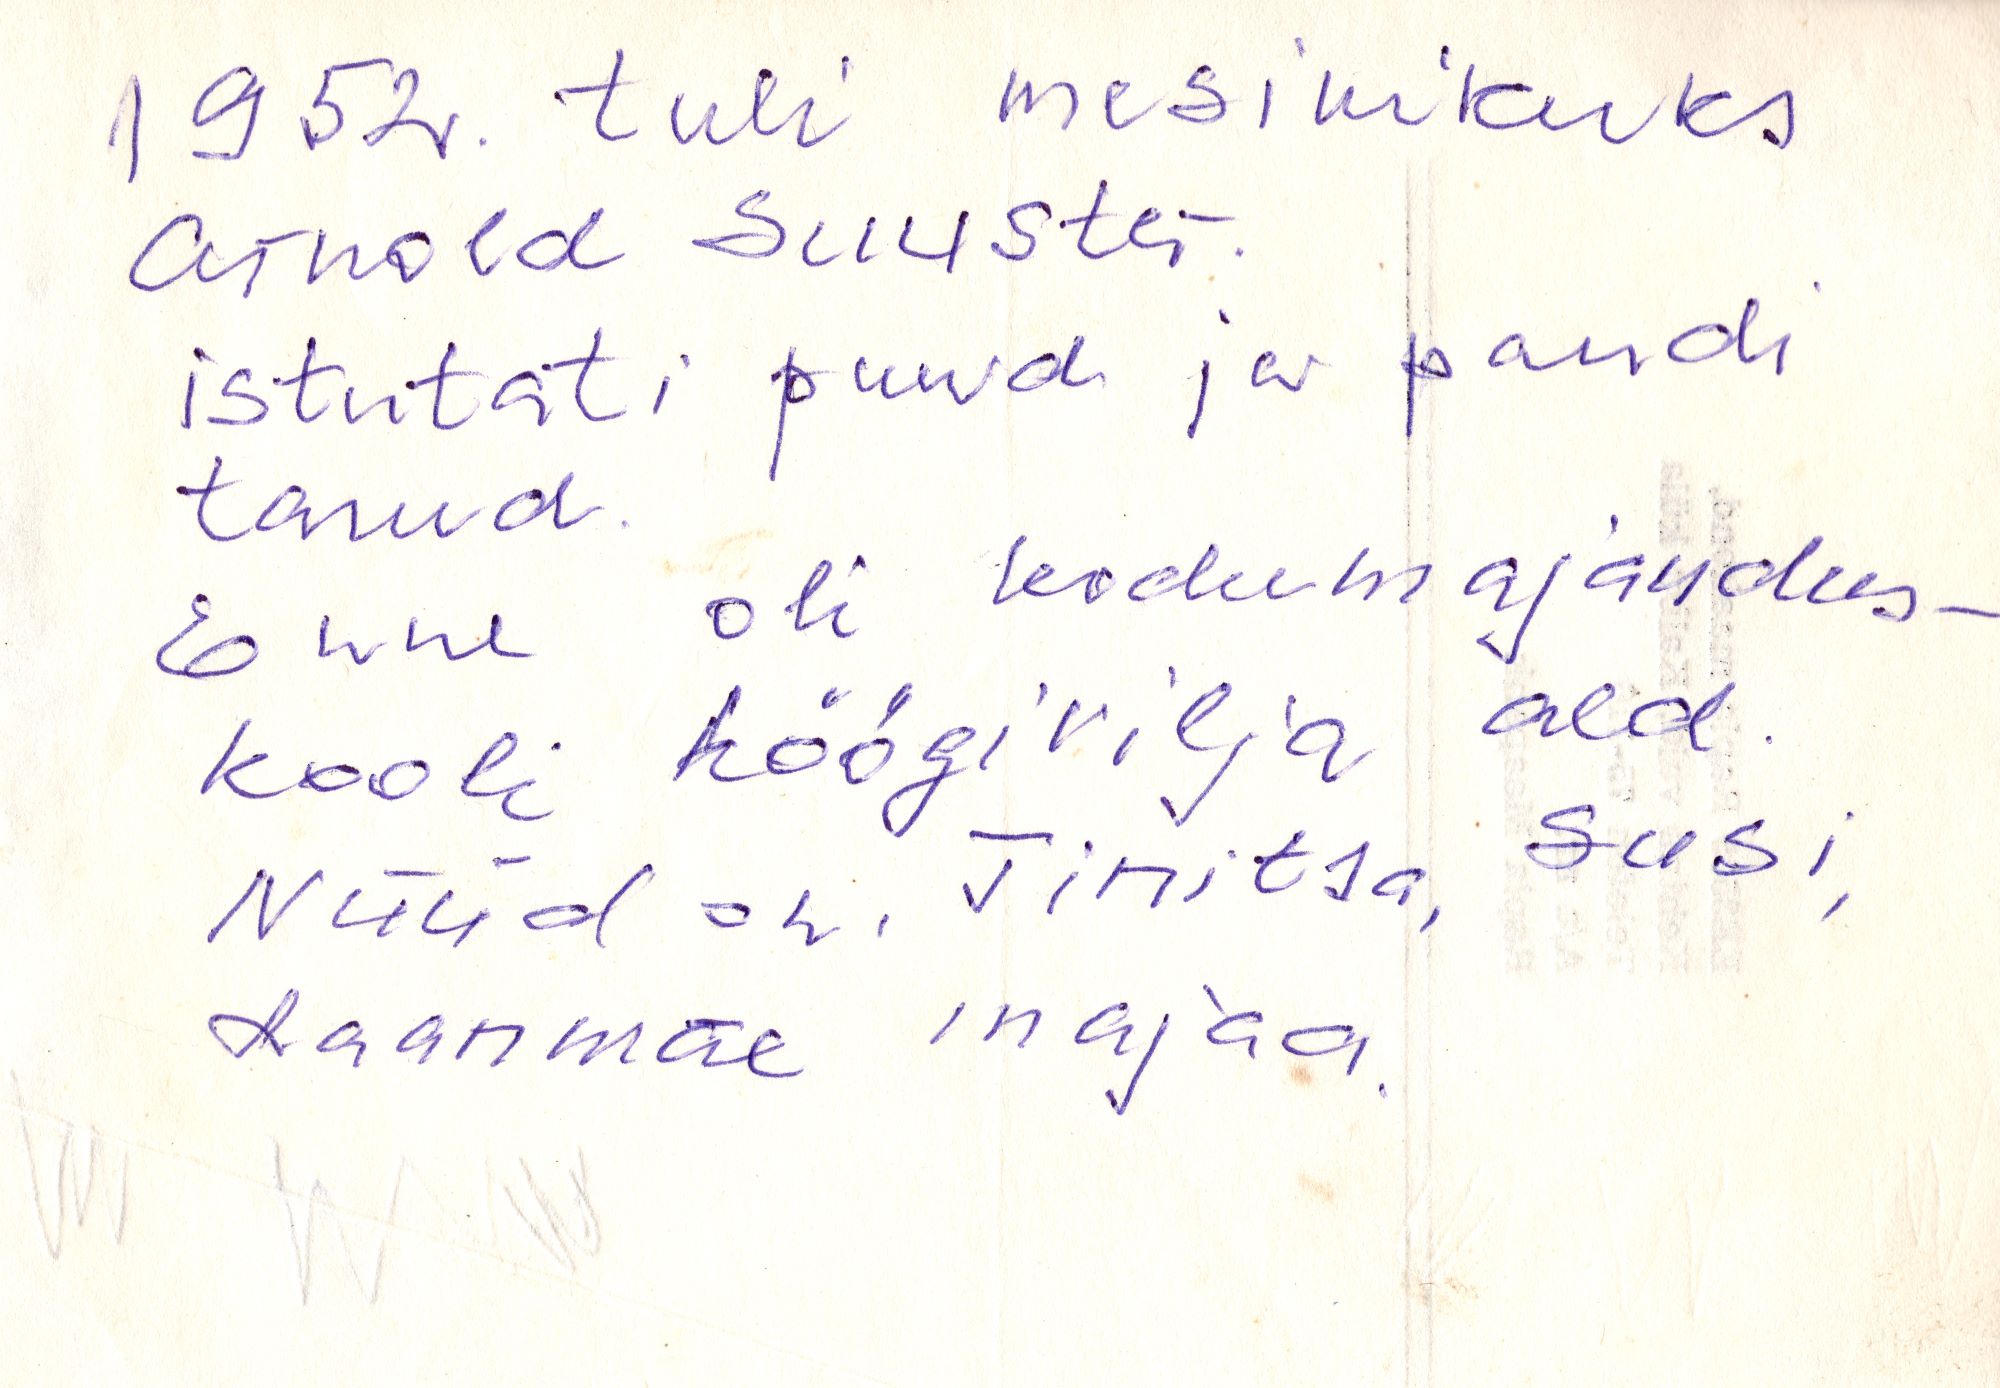 1952a. tuli mesinikuks
Arnold Suuster.
istutati puud ja pandi
tarud.
Enne oli kodumajandus-
kooli köögivilja aed.
Nüüd on. Tiritsa, Susi,
Laanmäe majaa.